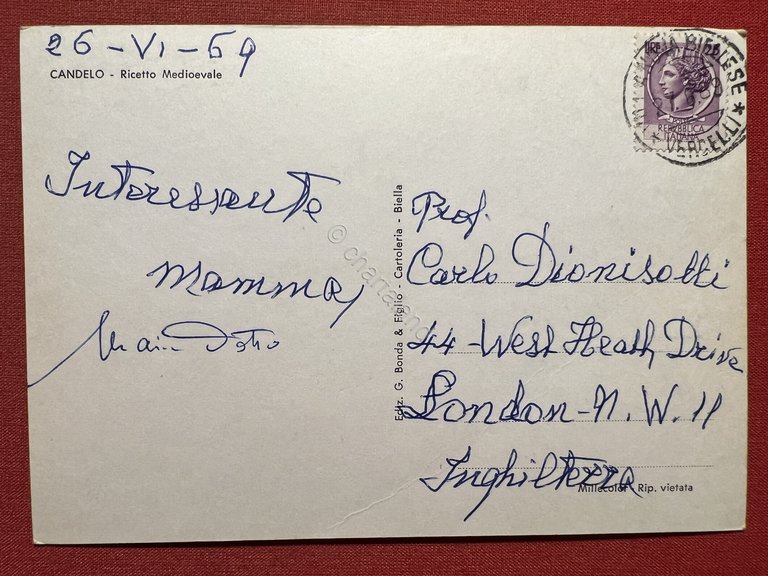 26-VI-69
CANDELO - Ricetto Medioevale
Interessante
mamma,
Prof.
Carlo Dionisotti
44 - West Heath Drive
London - N.W. 11
Inghilterra
Ediz. G. Bonda & Figlio - Cartoleria - Biella
Millecolor Rip. vietata
LIRE
REPVBBLICA
ITALIANA
BIELLESE
* VERCELLI *
© charta